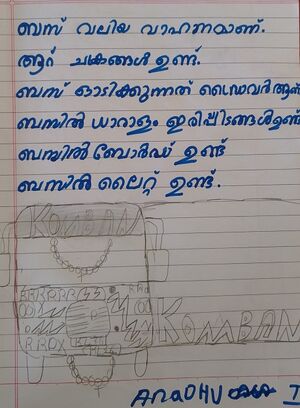 ബസ് വലിയ വാഹനമാണ്.
ആറ് ചക്രങ്ങൾ ഉണ്ട്.
ബസ് ഓടിക്കുന്നത് ഡ്രൈവർ ആണ്
ബസിൽ ധാരാളം ഇരിപ്പിടങ്ങൾ ഉണ്ട്
ബസിൽ ബോർഡ് ഉണ്ട്
ബസിൽ ലൈറ്റ് ഉണ്ട്.
KOMBAN
KOMBAN
ANaDHU
I